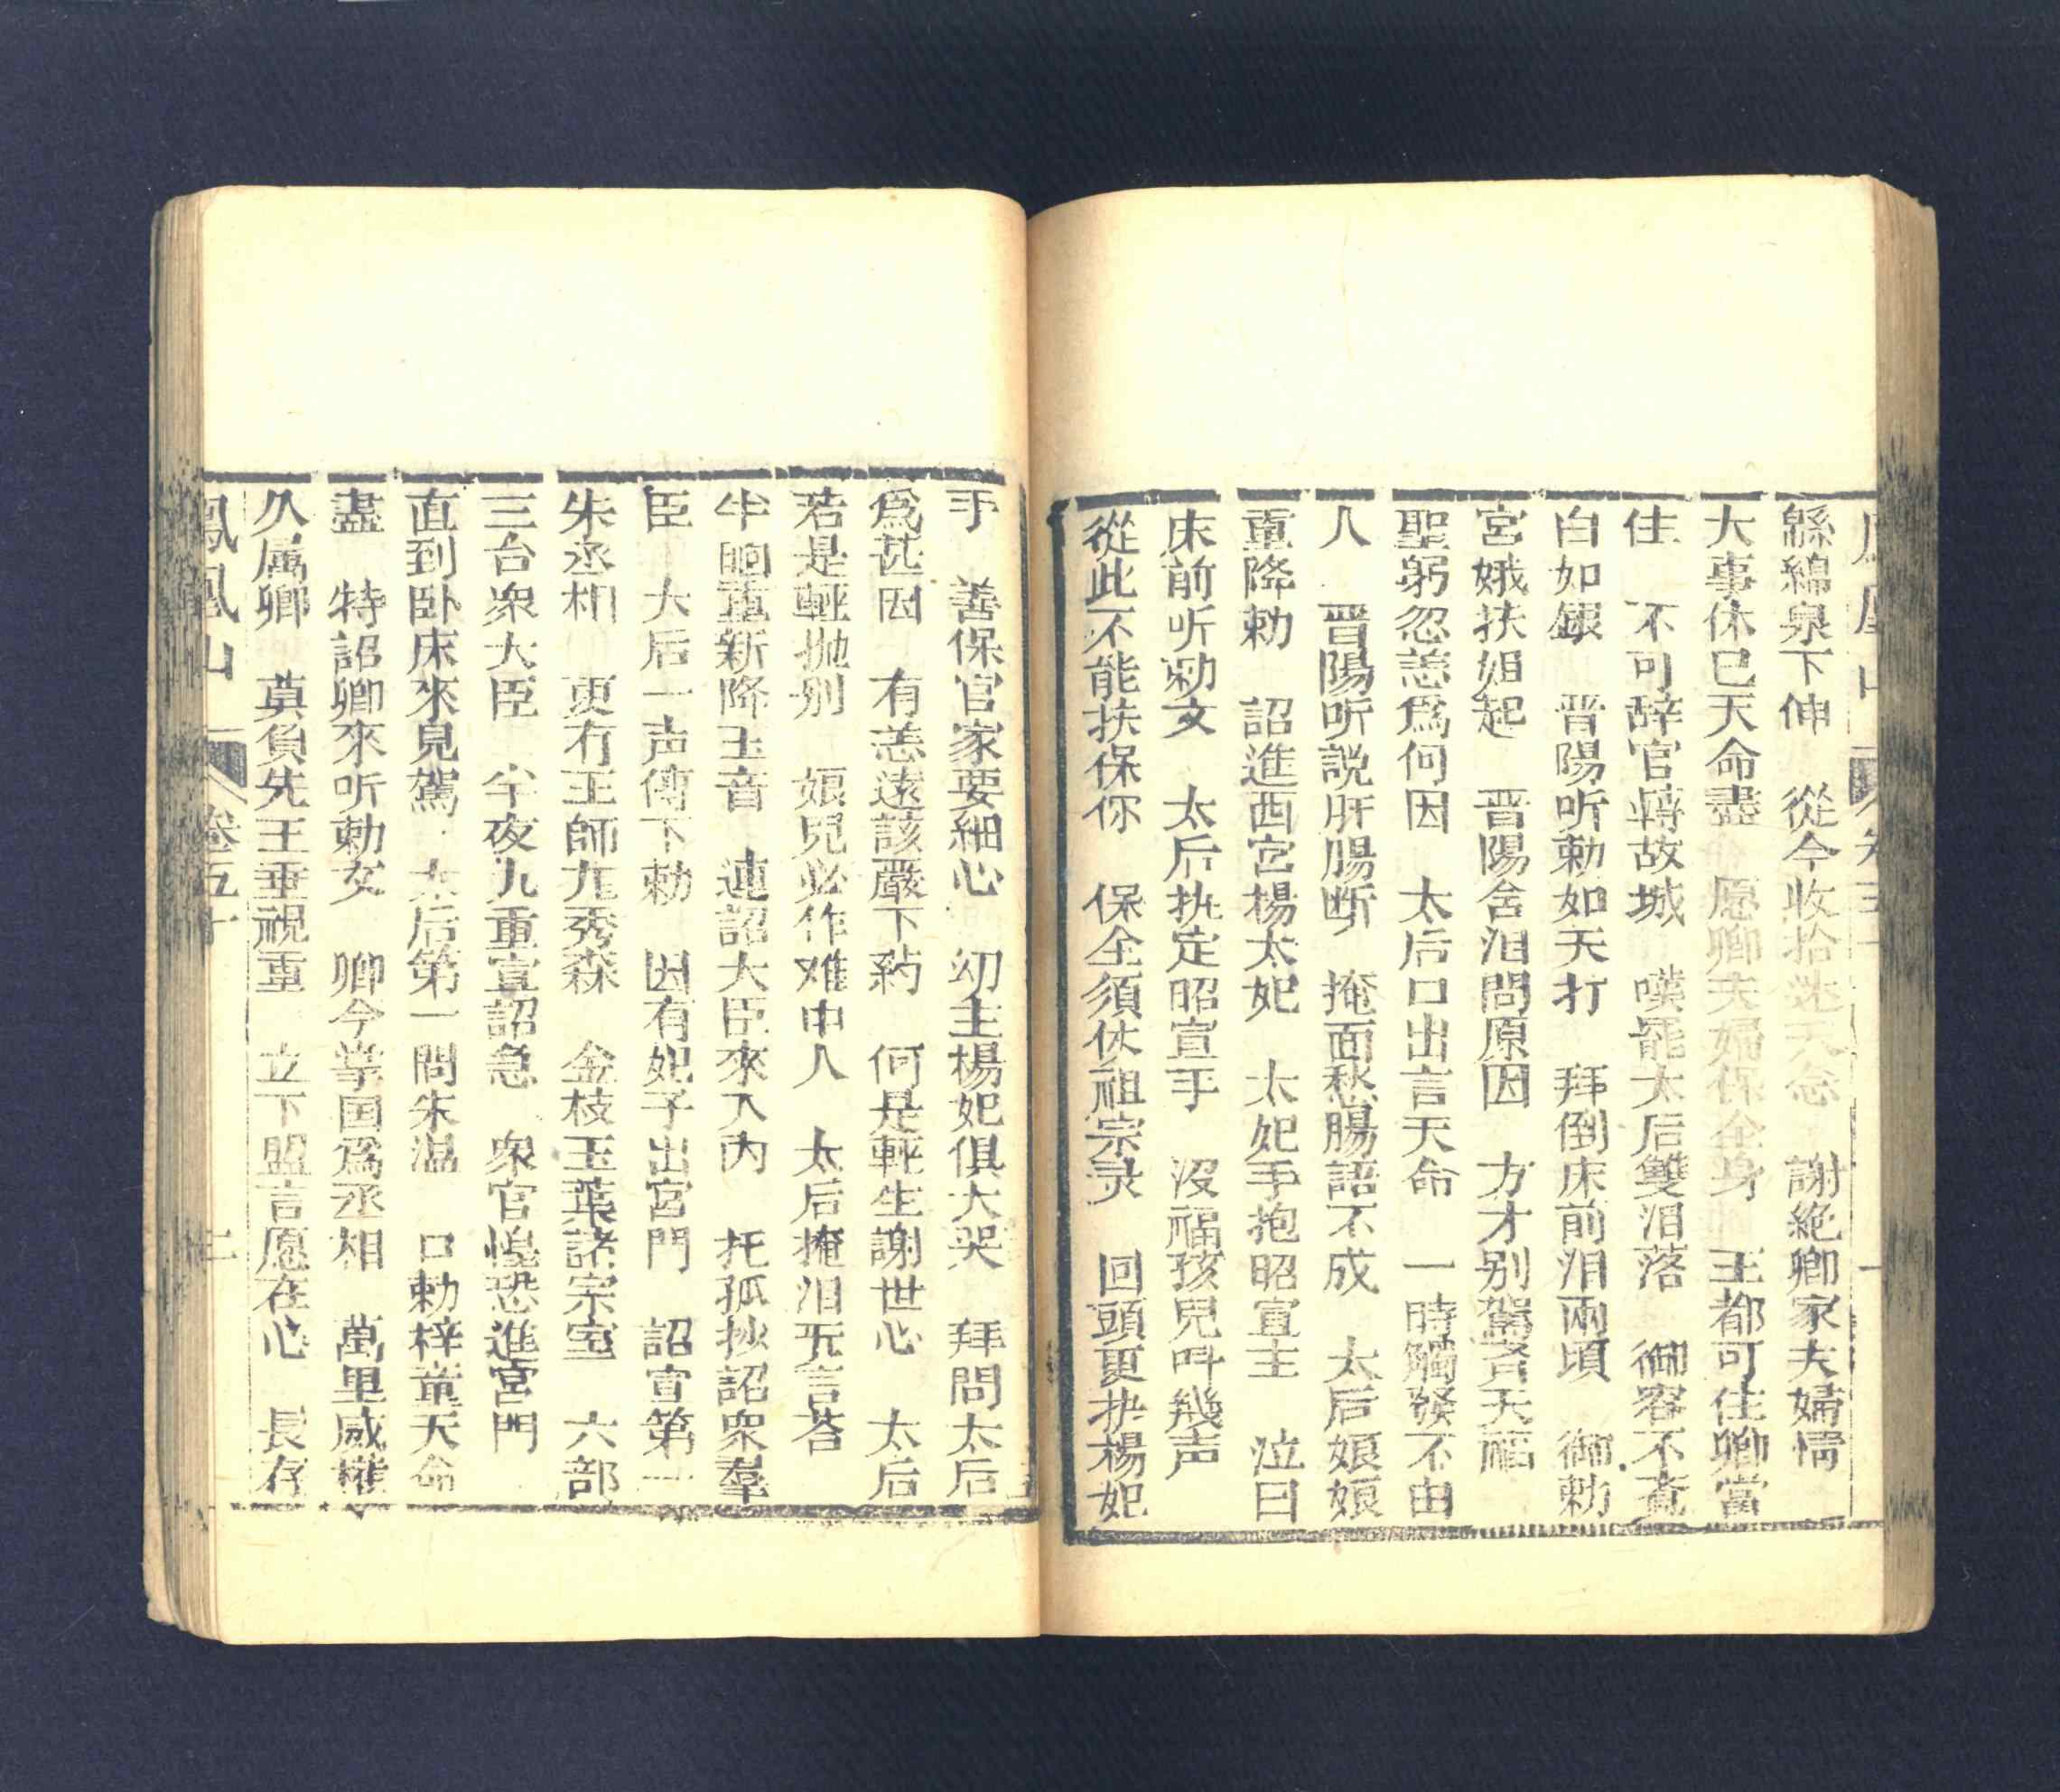 緜綿泉下伸　從今收拾迷天念　謝絶卿家夫婦情
大事休已天命盡　愿卿夫婦保全身　王都可住卿當
住　不可辞官轉故城　嘆罷太后雙泪落　御容不斎
白如銀　晋陽听勅如天打　拜倒床前泪兩頃　御勅
宮娥扶姐起　晋陽含泪問原因　方才别駕斉天福
聖躬忽恙爲何因　太后口出言天命　一時觸發不由
人　晋陽听説肝腸断　掩面愁腸語不成　太后娘娘
重降勅　詔進西宮楊太妃　太妃手抱昭宣主　泣曰
床前听勅文　太后执定昭宣手　没福孩兒呌幾声
從此不能扶保你　保全須仗祖宗灵　回頭更抉楊妃
手　善保官家要細心　幼主楊妃俱大哭　拜問太后
爲甚因　有恙遠該嚴下葯　何是輕生謝世心　太后
若是輕抛别　娘兒必作难中人　太后掩泪旡言荅
半晌重新降玉音　連詔大臣來入内　托孤抄詔衆羣
臣　太后一声傳下勅　因有妃子出宮門　詔宣第一
朱丞相　更有王師尢秀森　金枝玉葉諸宗室　六部
三台衆大臣　半夜九重宣詔急　衆官惶恐進宮門
直到卧床來見駕　太后第一問朱温　口勅梓童天命
盡　特詔卿來听勅文　卿今掌国爲丞相　萬里威權
久属卿　莫負先王垂視重　立下盟言愿在心　長存
鳳凰山　卷五十　二